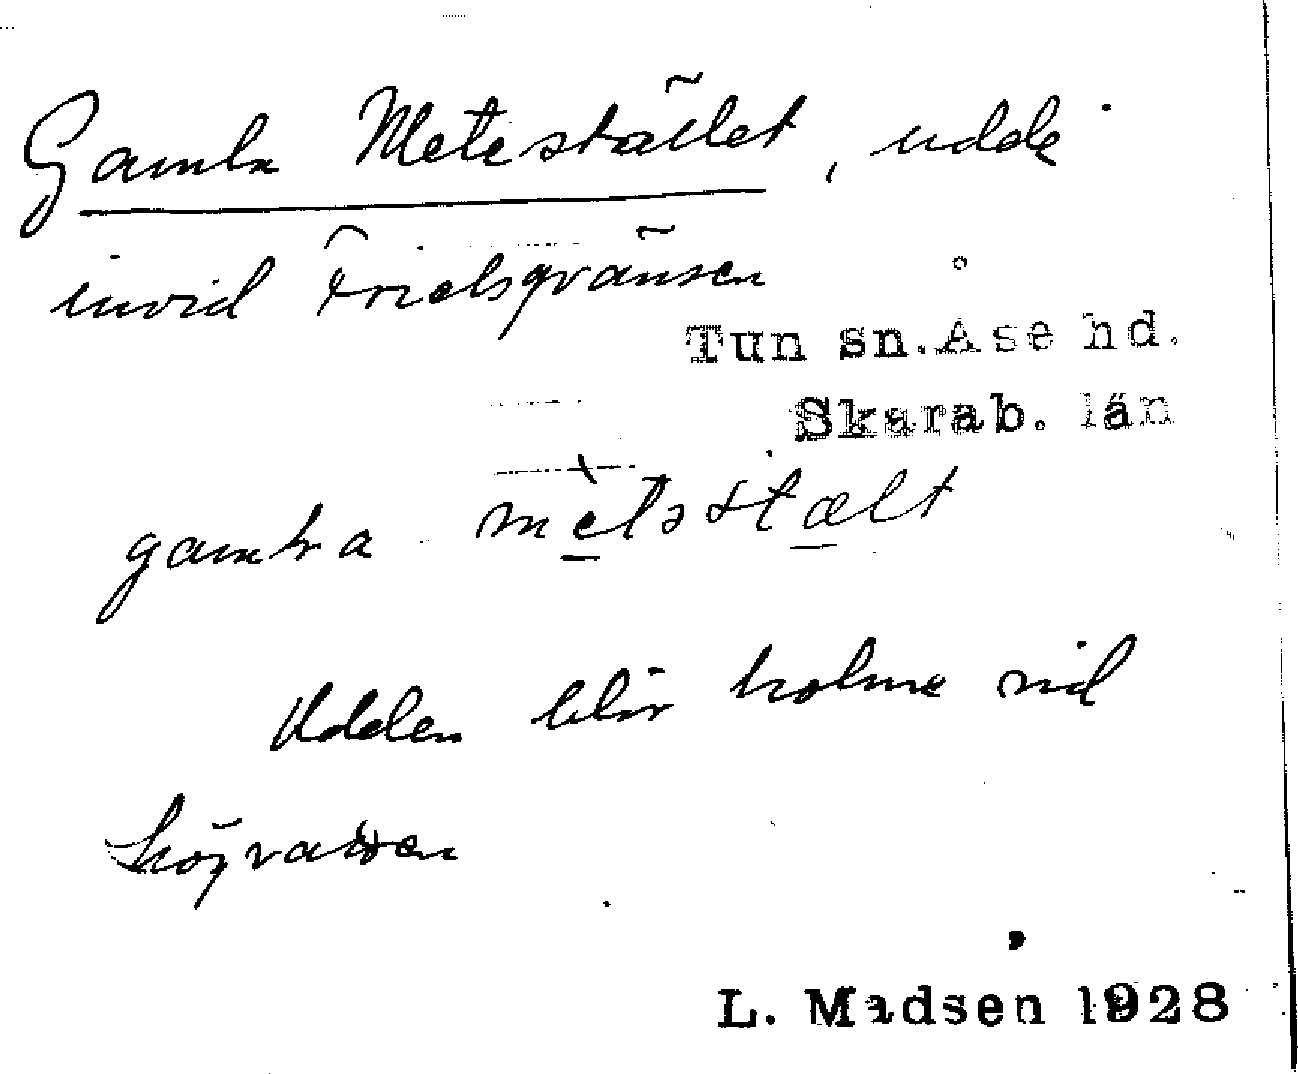 Gamla Metestället, udde
invid Frielsgränsen
Tun sn. Åse hd.
Skarab. län
gamla mètəstælt
Udden blir holme vid
högvatten
L. Madsen 1928